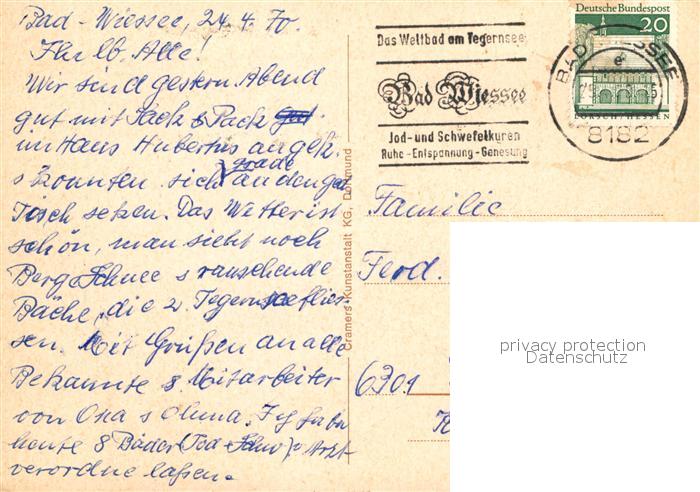 Bad-Wiessee, 24.4.70.
Ihr lb. Alle!
Wir sind gestern Abend
gut mit Sack & Pack
im Haus Hubertus angek.
s konnten sich grade an den
Tisch setzen. Das Wetter ist
schön, man sieht noch
Berg Schnee s rauschende
Bäche, die z. Tegernsee flies-
sen. Mit Grüßen an alle
Bekannte s Mitarbeiter
von Oma s Ich habe
heute 8 Bäder (Jod-) v. Arzt
verordne laßen.
Cramers-Kunstanstalt KG, Dortmund
Das Weltbad am Tegernsee
Bad Wiessee
Jod- und Schwefelkuren
Ruhe - Entspannung - Genesung
Deutsche Bundespost
20
BAD WIESSEE
LORSCH/HESSEN
8182
Familie
Ferd.
6301
privacy protection
Datenschutz